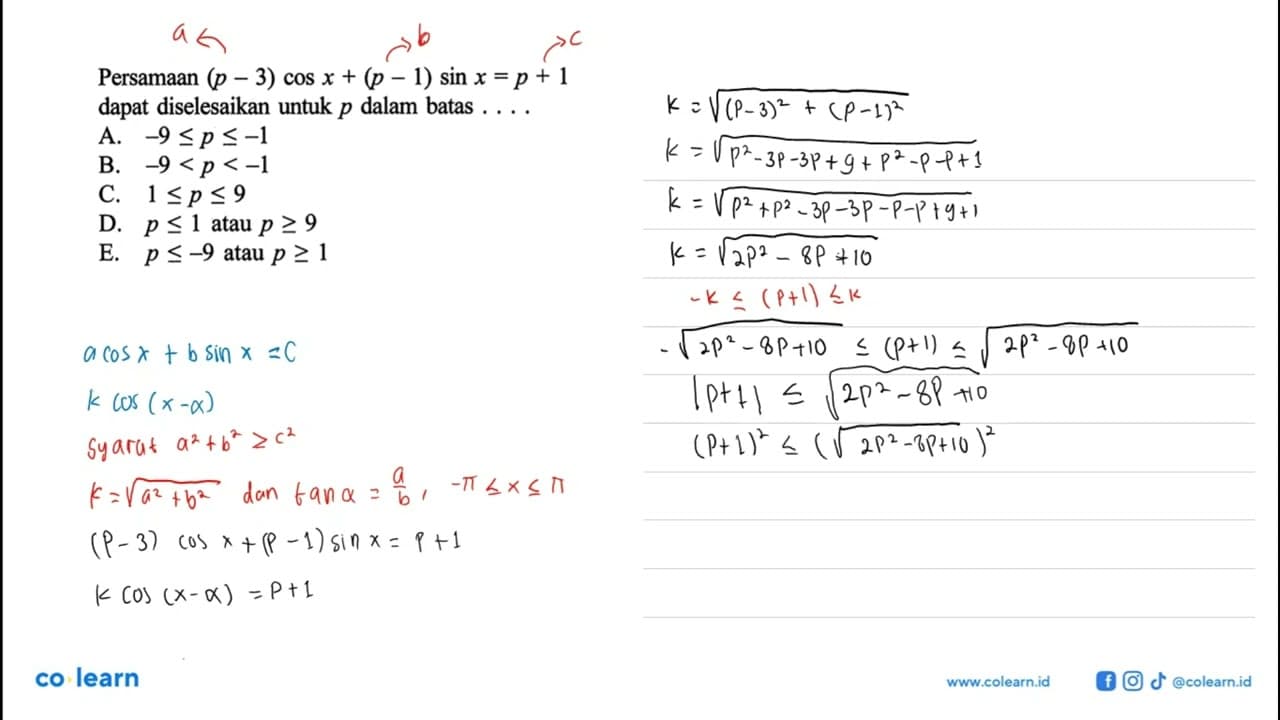 a b c
Persamaan (p − 3) cos x + (p − 1) sin x = p + 1
dapat diselesaikan untuk p dalam batas . . . .
A. −9 ≤ p ≤ −1
B. −9 < p < −1
C. 1 ≤ p ≤ 9
D. p ≤ 1 atau p ≥ 9
E. p ≤ −9 atau p ≥ 1
a cos x + b sin x = c
k cos (x - α)
syarat a² + b² ≥ c²
k = √(a² + b²) dan tan α = a/b, -π ≤ x ≤ π
(P-3) cos x + (P-1) sin x = P+1
k cos (x-α) = P+1
k = √((P-3)² + (P-1)²)
k = √(P² - 3P - 3P + 9 + P² - P - P + 1)
k = √(P² + P² - 3P - 3P - P - P + 9 + 1)
k = √(2P² - 8P + 10)
-k ≤ (P+1) ≤ k
-√(2P² - 8P + 10) ≤ (P+1) ≤ √(2P² - 8P + 10)
|P+1| ≤ √(2P² - 8P + 10)
(P+1)² ≤ (√(2P² - 8P + 10))²
co learn
www.colearn.id
@colearn.id